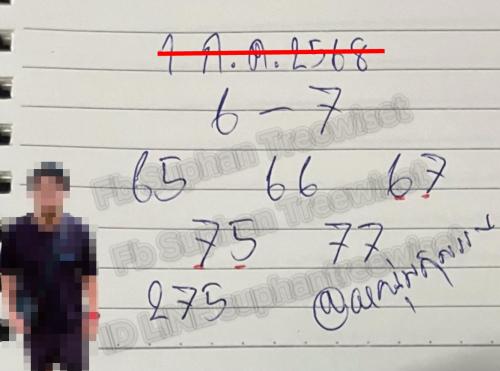 1 ก.ค. 2568
6 - 7
65 66 67
75 77
275
Fb Suphan Treewiset
Fb Suphan Treewiset
ID LINE suphantreewiset